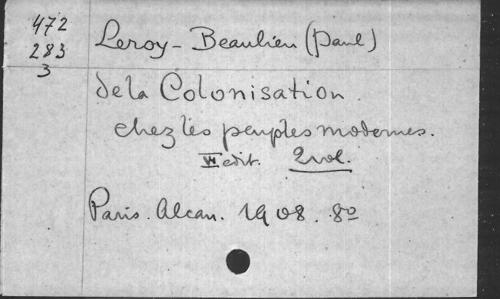 472
283
3
Leroy-Beaulieu (Paul)
de la Colonisation.
chez les peuples modernes.
VI edit. 2 vol.
Paris. Alcan. 1908. 8º